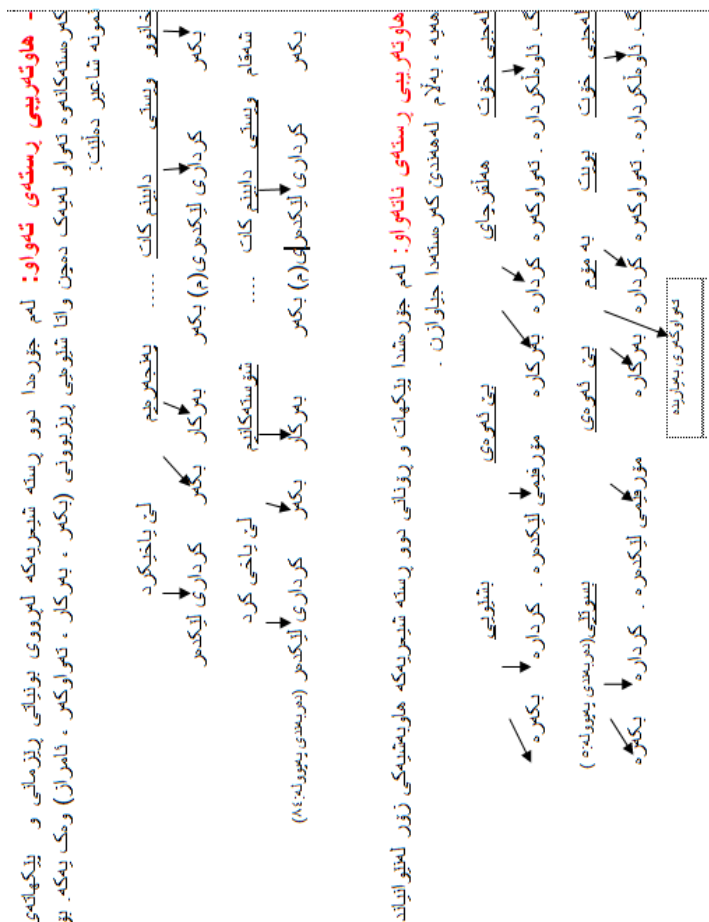 - هاوتەریبی ڕستەی تەواو: لەم جۆرەدا دوو ڕستە شیعریەکە لەڕووی بونیاتی ڕێزمانی و پێکهاتەی
کەرەستەکانەوە تەواو لەیەک دەچن واتا شێوەیی ڕیزبوونی (بکەر ، بەرکار ، تەواوکەر ، ئامراز) وەک یەکە. بۆ
نمونە شاعیر دەڵێت:
خانوو ویستی دابینم کات ..... پەنجەرەیم لێ یاخیکرد
بکەر کرداری لێکدەری(م) بکەر بەرکار بکەر کرداری لێکدەر
شەقام ویستی دابینم کات .... شۆستەکانیم لێ یاخی کرد
بکەر کرداری لێکدەری(م) بکەر بەرکار بکەر کرداری لێکدەر (دەربەندی پەپوولە:٨٤)
هاوتەریبی ڕستەی ناتەواو: لەم جۆرەشدا پێکهات و ڕۆنانی دوو ڕستە شیعریەکە هاوبەشیەکی زۆر لەنێوانیاند
هەیە ، بەڵام لەهەندێ کەرەستەدا جیاوازن .
لەجێی خۆت هەڵقرچای بێ ئەوەی بشلوێی
گ. ئاوەڵکردارە . تەواوکەرە کردارە بەرکارە مۆرفیمی لێکدەرە . کردارە بکەرە
لەجێی خۆت بویت بە مۆم بێ ئەوەی بسوتێی(دەربەندی پەپوولە:٥ )
گ. ئاوەڵکردارە . تەواوکەرە کردارە بەرکارە مۆرفیمی لێکدەرە . کردارە بکەرە
تەواوکەری بەیاریدە